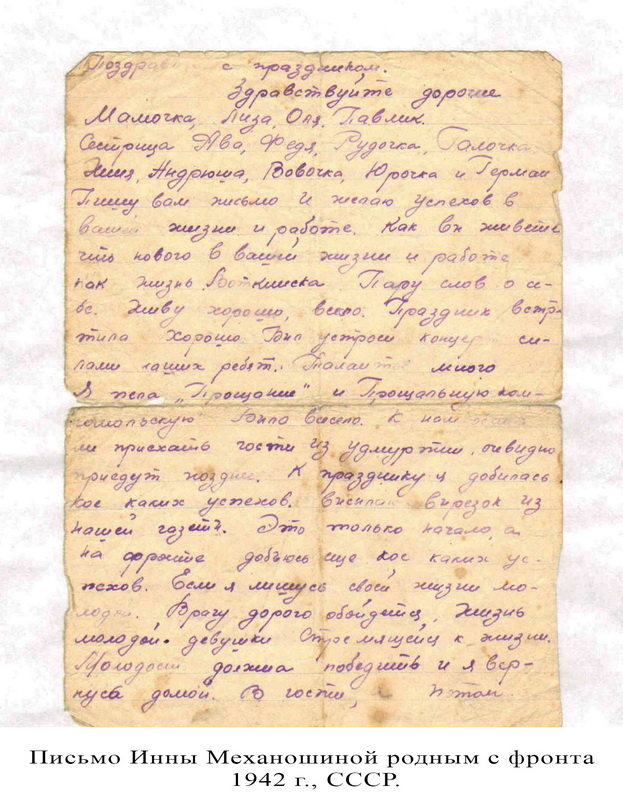 с праздником.
Здравствуйте дорогие
Мамочка, Лиза, Оля, Павлик.
Сестрица Ава, Федя, Рудочка, Галочка
Андрюша, Вовочка, Юрочка и Герман
Пишу вам письмо и желаю успехов в
вашей жизни и работе. Как вы живете
что нового в вашей жизни и работе
как жизнь Воткинска Пару слов о се-
бе. Живу хорошо, весело. Праздник встре-
тила хорошо был устроен концерт си-
лами наших ребят. Талантов много
Я пела „Прощание" и Прощальную ком-
сомольскую Было весело. К нам
ли приехать гости из удмуртии, очевидно
приедут поздне. К празднику я добилась
кое каких успехов. Высылаю вырезок из
нашей газеты. Это только начало, а
на фронте добьюсь еще кое каких ус-
пехов. Если я лишусь своей жизни мо-
лодой. Врагу дорого обойдется, жизнь
молодой девушки стремящейся к жизни.
Молодость должна победить и я вер-
нусь домой. В гости, а потом
Письмо Инны Механошиной родным с фронта
1942 г., СССР.